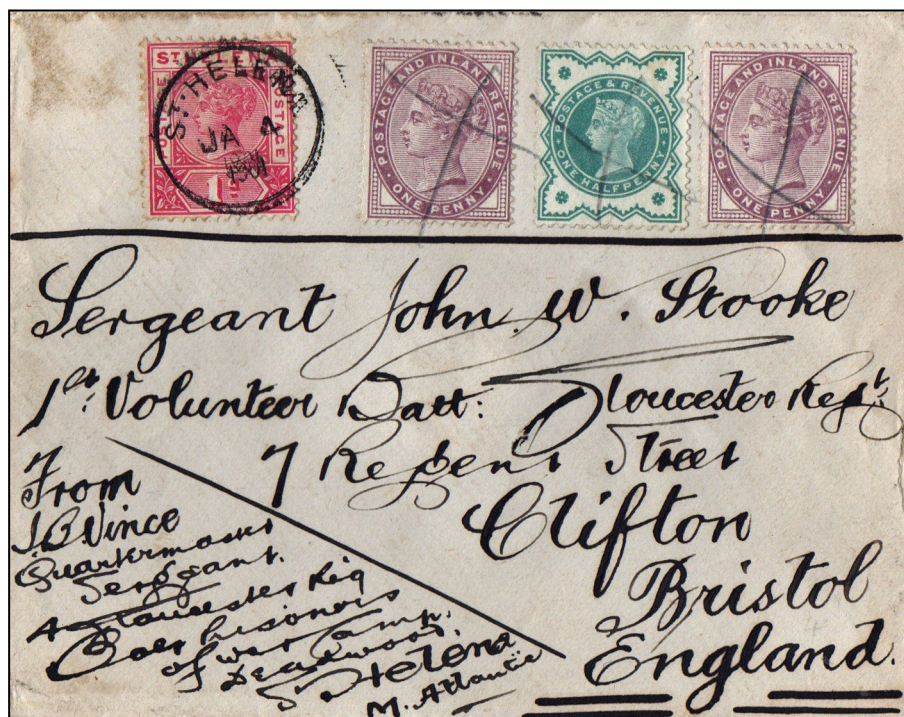 ST HELENA
POSTAGE
ST. HELENA
JA 4
1901
POSTAGE AND INLAND REVENUE
ONE PENNY
POSTAGE & REVENUE
ONE HALFPENNY
POSTAGE AND INLAND REVENUE
ONE PENNY
Sergeant John. W. Stooke
1st Volunteer Batt: Gloucester Regt.
7 Regent Street
Clifton
Bristol
England.
From
J.B. Vince
Quartermaster
Sergeant.
4 Gloucester Reg
Boer Prisoners
of war Camp.
Deadwood.
St Helena
Atlantic